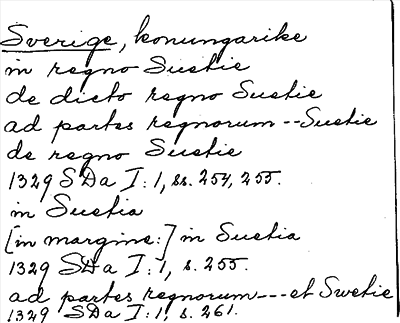 Sverige, konungarike
in regno Suetie
de dicto regno Suetie
ad partes regnorum -- Suetie
de regno Suetie
1329 SDa I:1, ss. 254, 255.
in Suetia
[in margine:] in Suetia
1329 SDa I:1, s. 255.
ad partes regnorum --- et Swetie
1329 SDa I:1, s. 261.